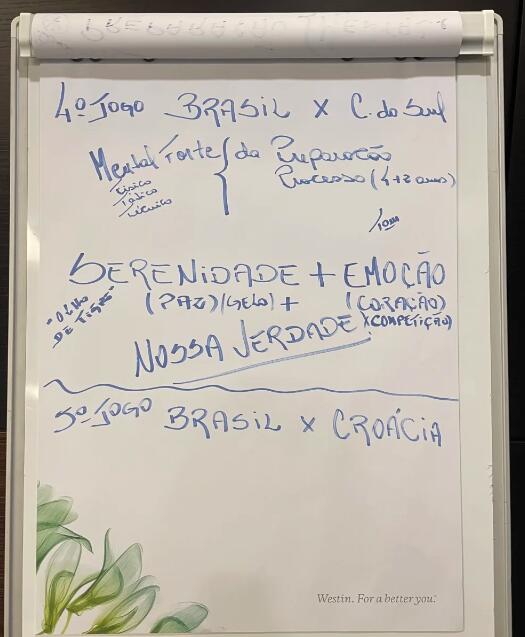 4º JOGO BRASIL X C. do Sul
Mental Forte { da Preparação
Físico
Tático
Técnico
Processo (4+2 anos)
SERENIDADE + EMOÇÃO
"OLHO
DE TIGRE"
(PAZ)/(GELO) + (CORAÇÃO)
X COMPETIÇÃO)
NOSSA VERDADE
5º JOGO BRASIL X CROÁCIA
Westin. For a better you.®